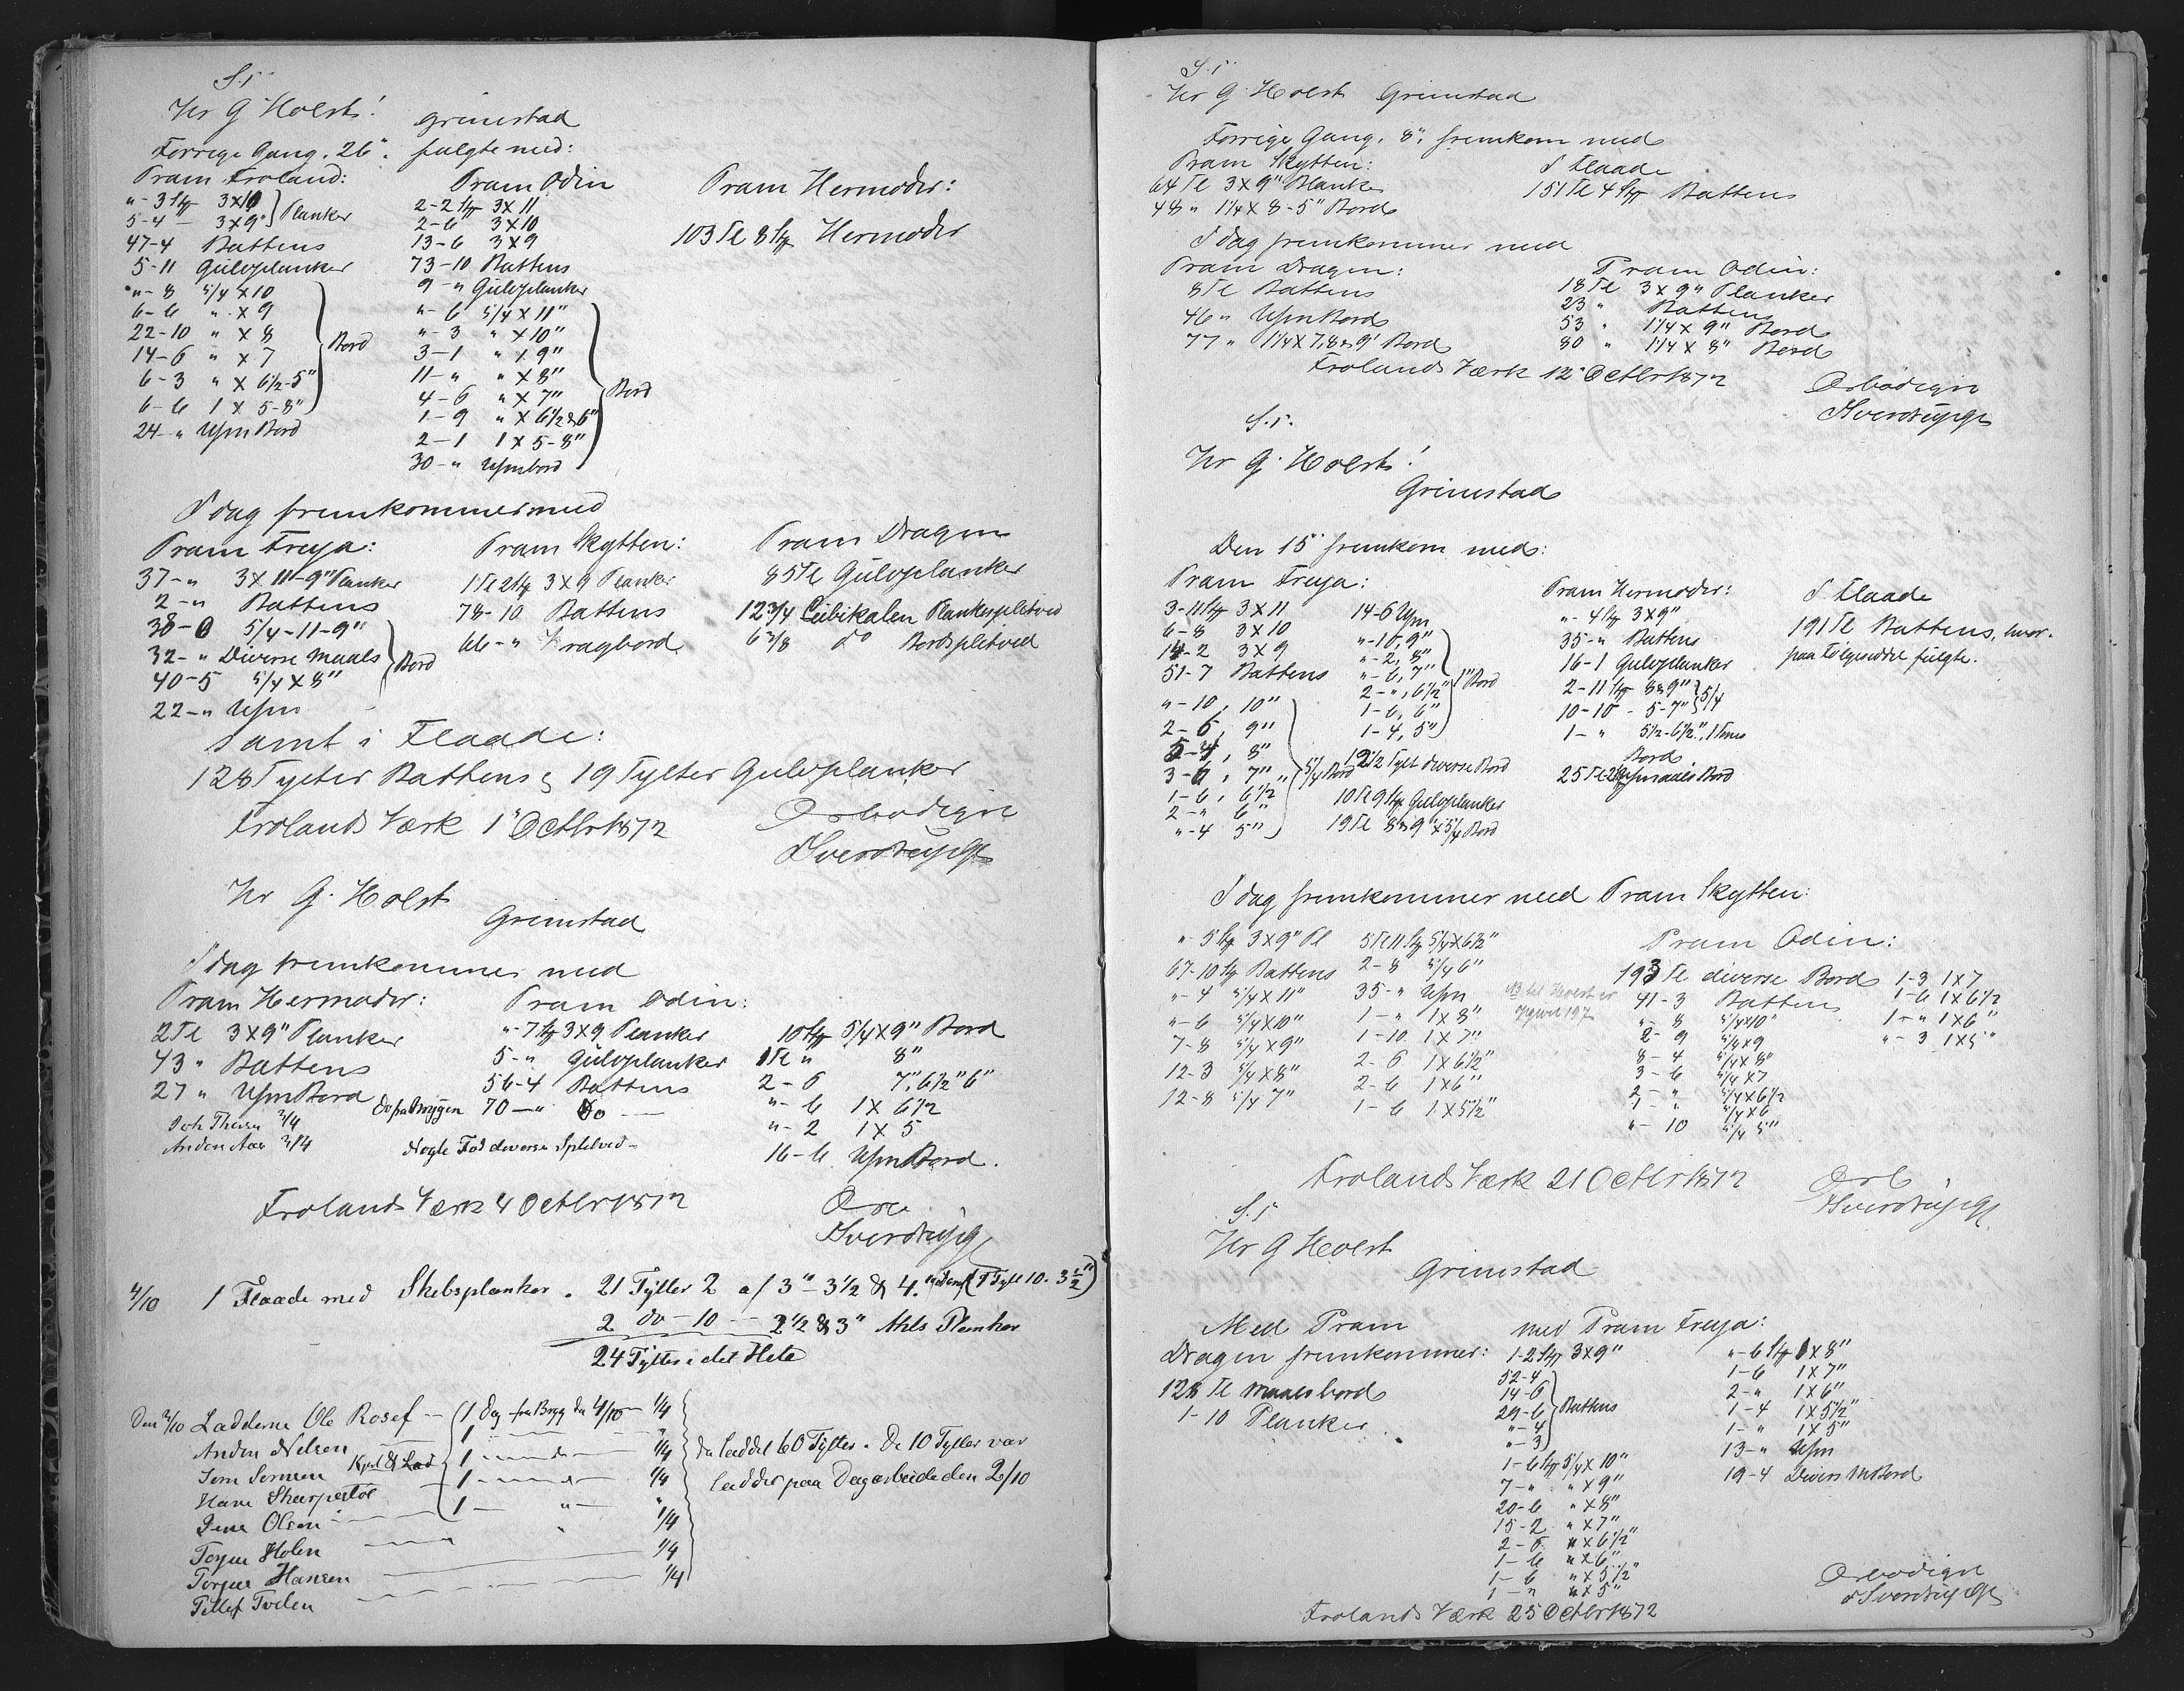 S.T.
Hr G Holst! Grimstad
Forrige Gang, 26", fulgte med:
Pram Froland:
"-3 Stk 3X10
5-4 — 3X9" } Planker
47-4 Battens
5-11 Gulvplanker
"-8 5/4 X10
6-6 " X 9
22-10 " X 8
14-6 " X 7
6-3 " X 6½-5"
6-6 1 X 5-8"
} Bord
24-" Usm Bord
Pram Odin
2-2 Stk 3X11
2-6 3X10
13-6 3X9
73-10 Battens
9-" Gulvplanker
"-6 5/4 X 11"
"-3 " X10"
3-1 " X 9"
11-" " X 8"
4-6 " X 7"
1-9 " X 6½ & 6"
2-1 1 X 5-8"
30-" Usmbord
} Bord
Pram Hermoder:
103 Tl 8 Stk Hermoder
I dag fremkommer med
Pram Freya:
37-" 3X 11-9" Planker
2-" Battens
38-0 5/4-11-9"
32-" Diverse Maals
40-5 5/4 X 8"
} Bord
22-" Usm
Pram Skytten:
1 Tl 2 Stk 3X9 Planker
78-10 Battens
66-" Vragbord
Pram Dragen
85 Tl Gulvplanker
12¾ Cubikalen Plankesplitved
6⅜ do Bordsplitved
samt i Flaade:
128 Tylter Battens & 19 Tylter Gulvplanker
Frolands Værk 1" Octbr 1872
Ærbødigst
HSverdrup
Hr G. Holst
Grimstad
I dag fremkommer med
Pram Hermoder:
2 Tl 3X9" Planker
43 " Battens
27 " Usm Bord
Anders Aas 3/4
Pram Odin:
"-7 Stk 3X9 Planker
5-" Gulvplanker
56-4 Battens
do paa Bryggen 70—" do —
Nogle Fod diverse Splitved
10 Stk 5/4X9" Bord
1 Tl " 8"
2-6 7", 6½" 6"
"-6 1X 6½
"-2 1X 5
16-6 Usm Bord.
Frolands Værk 4 Octbr 1872
HSverdrup
4/10 1 Flaade med Skibsplanker. 21 Tylter 2 af 3" - 3½ & 4." (1 Tylt 10. 3½")
2 do — 10 — 2½ & 3" Planker
24 Tylter i det Hele
Den 2/10 Ladderne Ole Rosef — 1 Dag fra Brygg den 4/10 — ¼
Anders Nelsen — 1
Jens Jensen — 1 — ¼
Hans — 1 — ¼
Jens Olsen — 1 — "
Torjus Holen — ¼
Torjus Hansen — ¼
Tellef Tvelen — ¼
da laddet 60 Tylter. De 10 Tylter var
laddet paa Dagarbeide den 2/10
S.T.
Hr G. Holst Grimstad
Forrige Gang, 8", fremkom med
Pram Skytten:
64 Tl 3X9" Planker
48 " 1¼X 8-5" Bord
I Flaade
151 Tl 4 Stk Battens
I dag fremkommer med
Pram Dragen:
8 Tl Battens
46 " Usm Bord
77 " 1¼X 7, 8 & 9" Bord
Pram Odin:
18 Tl 3X9" Planker
23 " Battens
53 " 1¼X 9" Bord
80 " 1¼ X 8" Bord
Frolands Værk 12" Octbr 1872
Ærbødigst
HSverdrup
S.T.
Hr G. Holst!
Grimstad
Den 15" fremkom med:
Pram Freya:
3-11 Stk 3X11
6-8 3X10
14-2 3X9
51-7 Battens
"-10, 10"
2-6, 9"
5-4, 8"
3-6, 7"
1-6, 6½
2-" 6"
"-4 5"
} 5/4 Bord
14-6 Usm
"-10, 9"
"-2, 8"
"-6, 7"
2-", 6½"
1-6, 6"
1-4, 5"
} 1" Bord
12½ Tylt diverse Bord
10 Tl 9 Stk Gulvplanker
19 Tl 8 & 9"X5/4 Bord
Pram Hermoder:
"-4 Stk 3X9"
35-" Battens
16-1 Gulvplanker
2-11 Stk 8 & 9"
10-10 - 5-7"
} 5/4
1-" 5½-6½", 1 Toms
Bord
25 Tl 2 Stk Usmaals Bord
I Flaade
191 Tl Battens, hvor-
paa Følgeseddel fulgte.
I dag fremkommer med Pram Skytten:
"-5 Stk 3X9" Pl
67-10 Stk Battens
"-4 5/4X11"
"-6 5/4X10"
7-8 5/4X9"
12-3 5/4X8"
12-8 5/4 7"
5 Tl 11 Stk 5/4X6½"
2-8 5/4 6"
35-" Usm
1-" 1X8"
1-10 1X7"
2-6 1X6½"
2-6 1X6"
1-6 1X5½"
Pram Odin:
193 Tl diverse Bord
41-3 Battens
"-8 5/4X10"
2-9 5/4X9
8-4 5/4X8"
3-6 5/4X7
2-" 5/4X6½
1-" 5/4X6
"-10 5/4 5"
1-3 1X7
1-6 1X6½
1-" 1X6"
"-3 1X5"
Frolands Værk 21 Octbr 1872
Ærb
HSverdrup
S.T.
Hr G Holst
Grimstad
Med Pram
Dragen fremkommer:
128 Tl Maalsbord
1-10 Planker
med Pram Freya:
1-2 Stk 3X9"
52-4
14-6
29-6
"-4
"-3
} Battens
1-6 Stk 5/4X10"
7-" " X9"
20-6 " X8"
15-2 " X7"
2-6 " X6½"
1-6 " X6"
1-6 " X5½"
1-" " X5"
"-6 Stk 1X8"
1-6 1X7"
2-" 1X6"
1-4 1X5½"
1-" 1X5"
13-" Usm
19-4 Divers Bord
Frolands Værk 25 Octbr 1872
Ærbødigst
HSverdrup